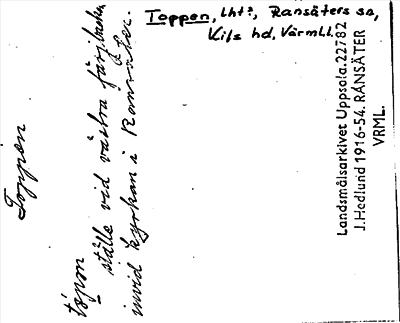 Toppen, lht?, Ransäters sn,
Kils hd, Värml.
Toppen
tåpm
ställe vid västra färjbacken
invid kyrkan i Ransäter.
Landsmålsarkivet Uppsala. 22782
J. Hedlund 1916-54. RANSÄTER
VRML.